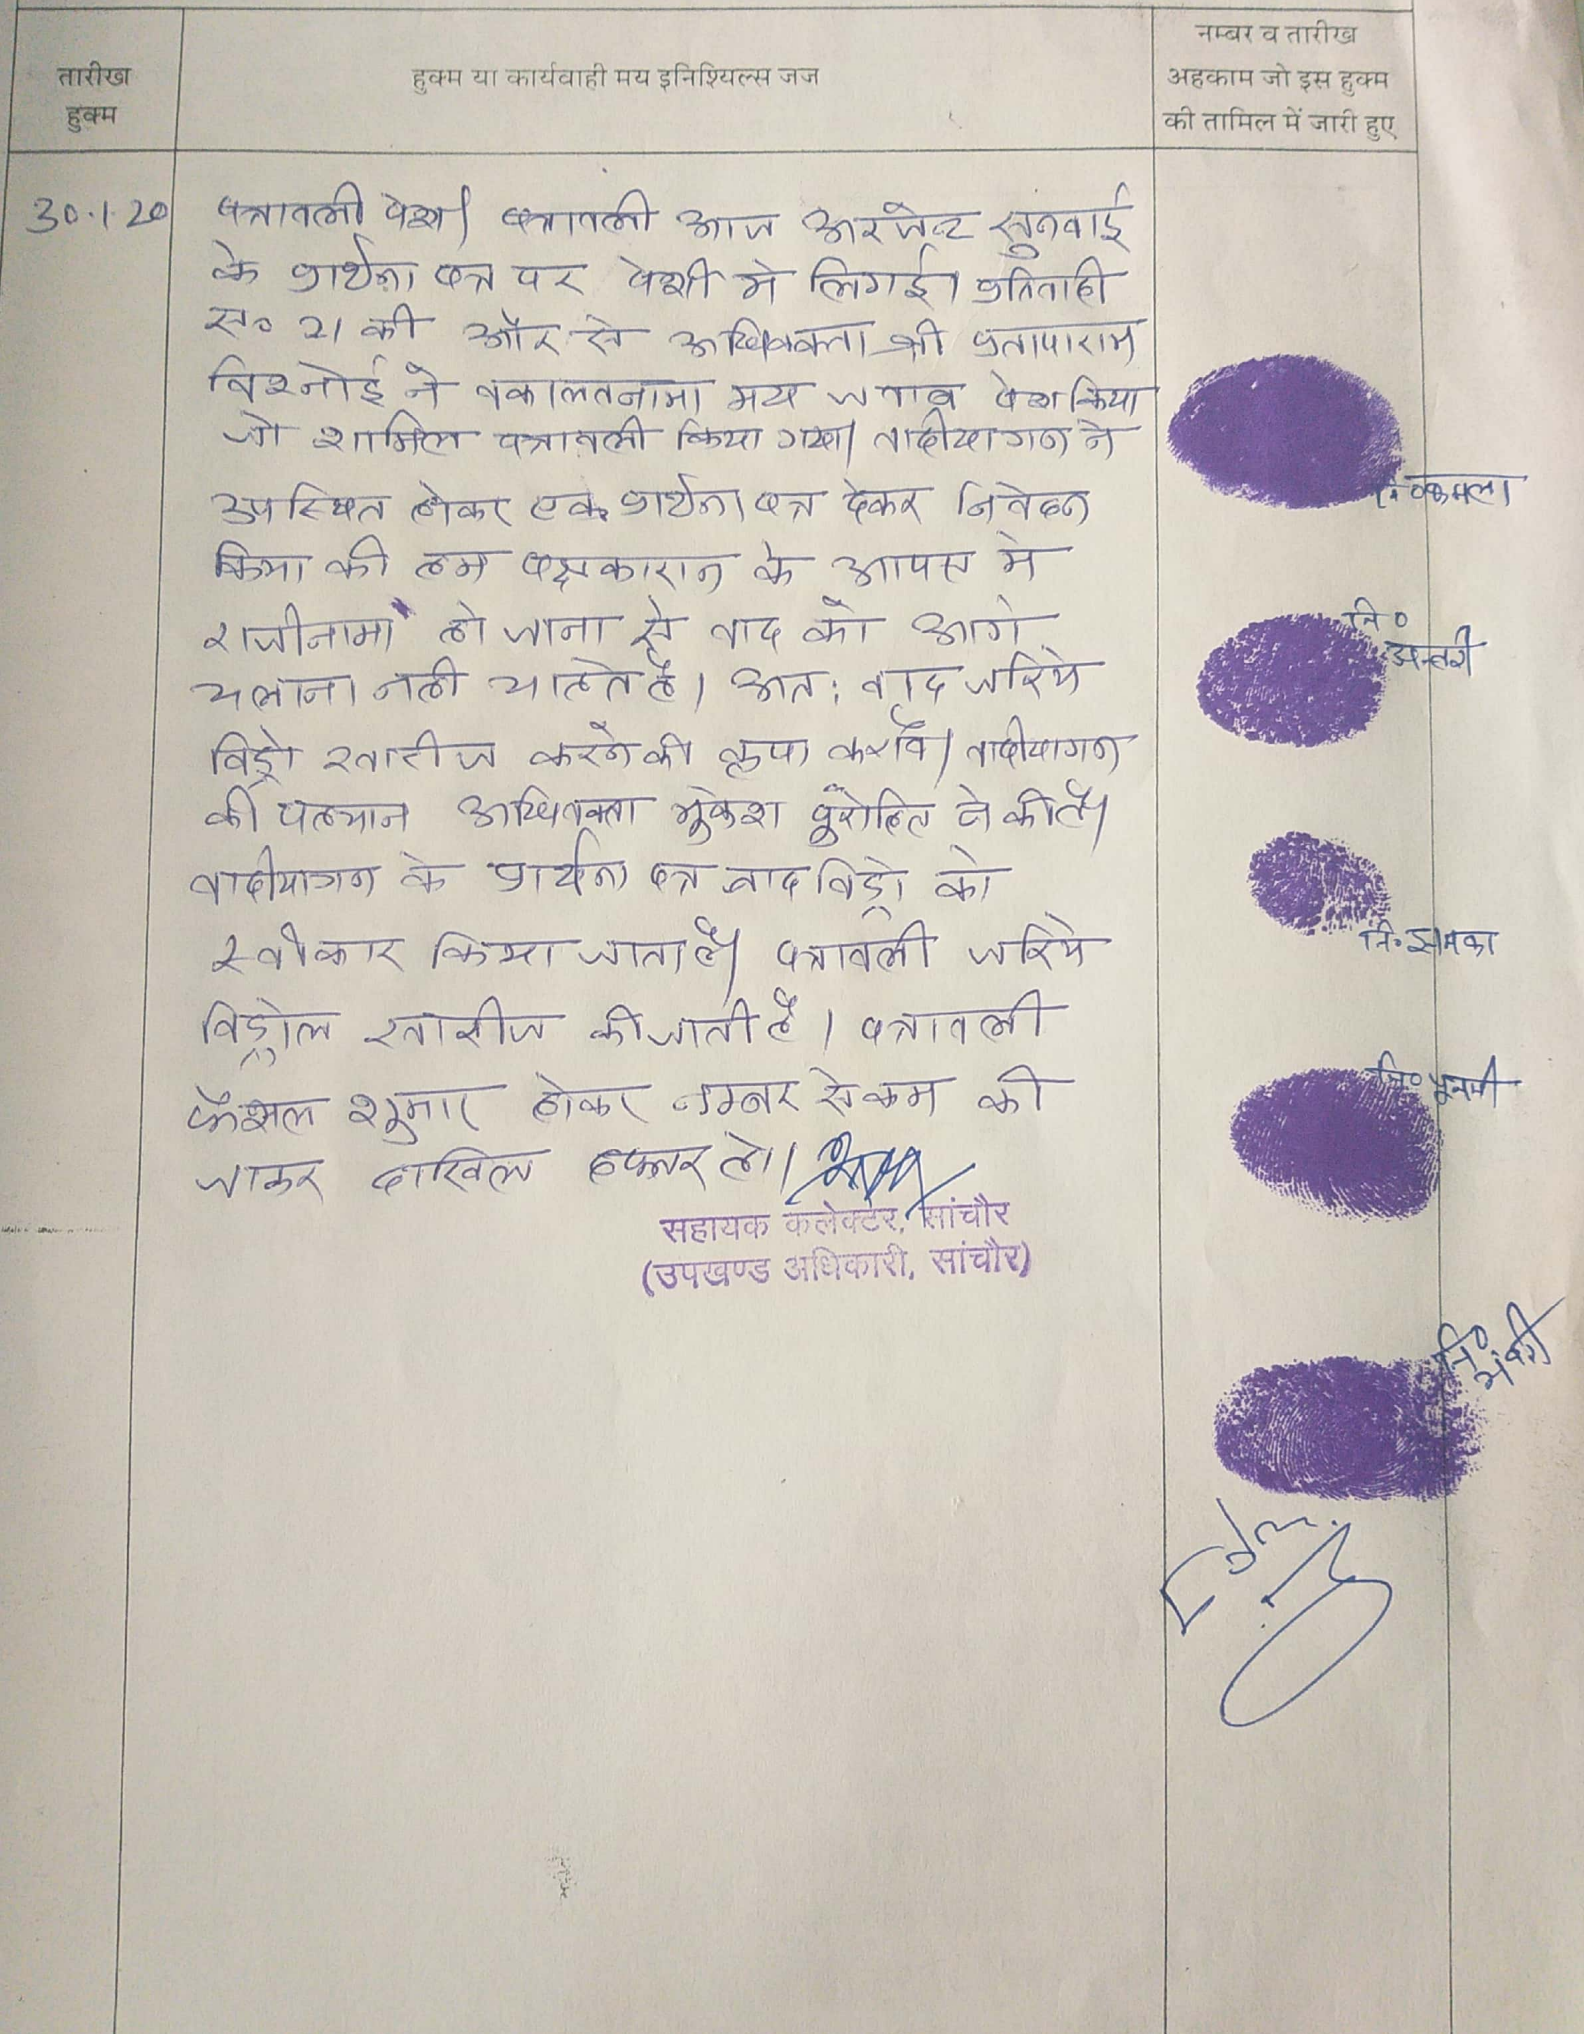 तारीख
हुक्म
हुक्म या कार्यवाही मय इनिश्यिल्स जज
नम्बर व तारीख
अहकाम जो इस हुक्म
की तामिल में जारी हुए
30.1.20
पत्रावली पेश। पत्रावली आज अरजेन्ट सुनवाई
के प्रार्थना पत्र पर पेशी मे लिगई। प्रतिवादी
स० 21 की और से अधिवक्ता श्री प्रतापाराम
विश्नोई ने वकालतनामा मय जवाब पेश किया
जो शामिल पत्रावली किया गया। वादीयागन ने
उपस्थित होकर एक प्रार्थना पत्र देकर निवेदन
किया की हम पक्षकारान के आपस मे
राजीनामा हो जाना से वाद को आगे
चलाना नही चाहते है। अत: वाद जरिये
विड्रो खारीज करने की कृपा करावे। वादीयागन
की पहचान अधिवक्ता मुकेश पुरोहित ने की है।
वादीयागन के प्रार्थना पत्र वाद विड्रो को
स्वीकार किया जाता है। पत्रावली जरिये
विड्रोल खारीज की जाती है। पत्रावली
फैशल शुमार होकर नम्बर से कम की
जाकर दाखिल दफ्तर हो।
सहायक कलेक्टर, सांचौर
(उपखण्ड अधिकारी, सांचौर)
नि० कमला
नि०
अन्तरी
नि०
नि०
नि०